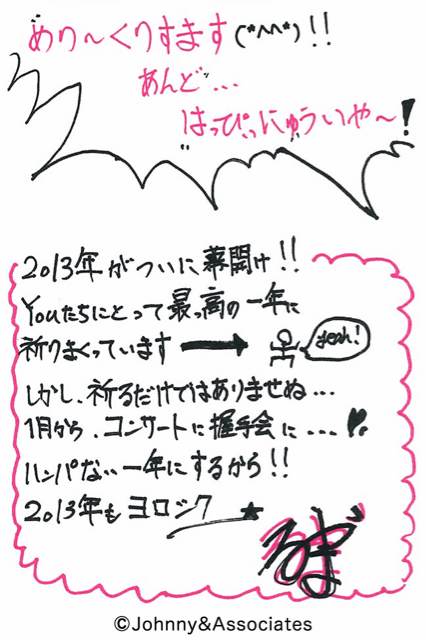 めり〜くりすます(*^^*)!!
あんど…
はっぴぃにゅういや〜!
2013年がついに幕開け!!
Youたちにとって最っ高の一年に
祈りまくっています → yeah!
しかし、祈るだけではありませぬ…
1月から、コンサートに握手会に…
ハンパない一年にするから!!
2013年もヨロシク★
©Johnny&Associates